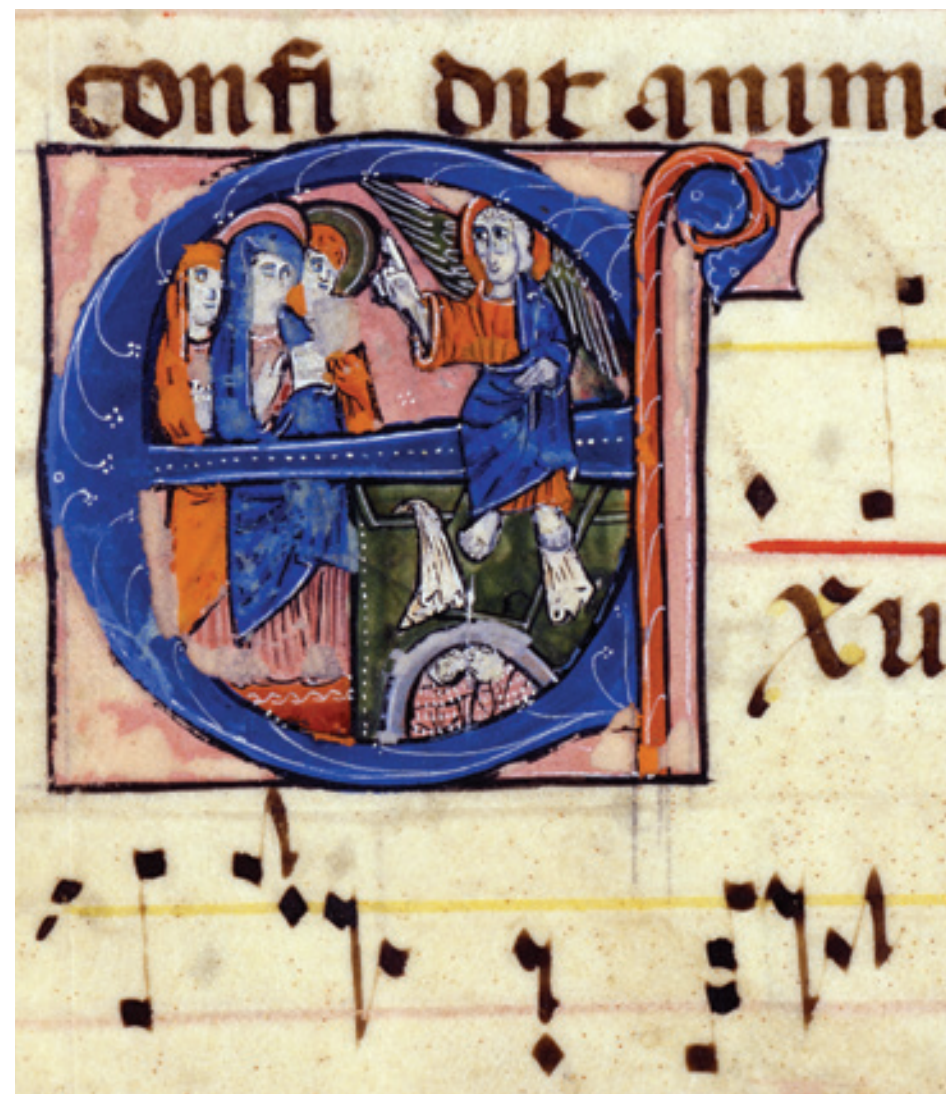 confi dit anima
Exu